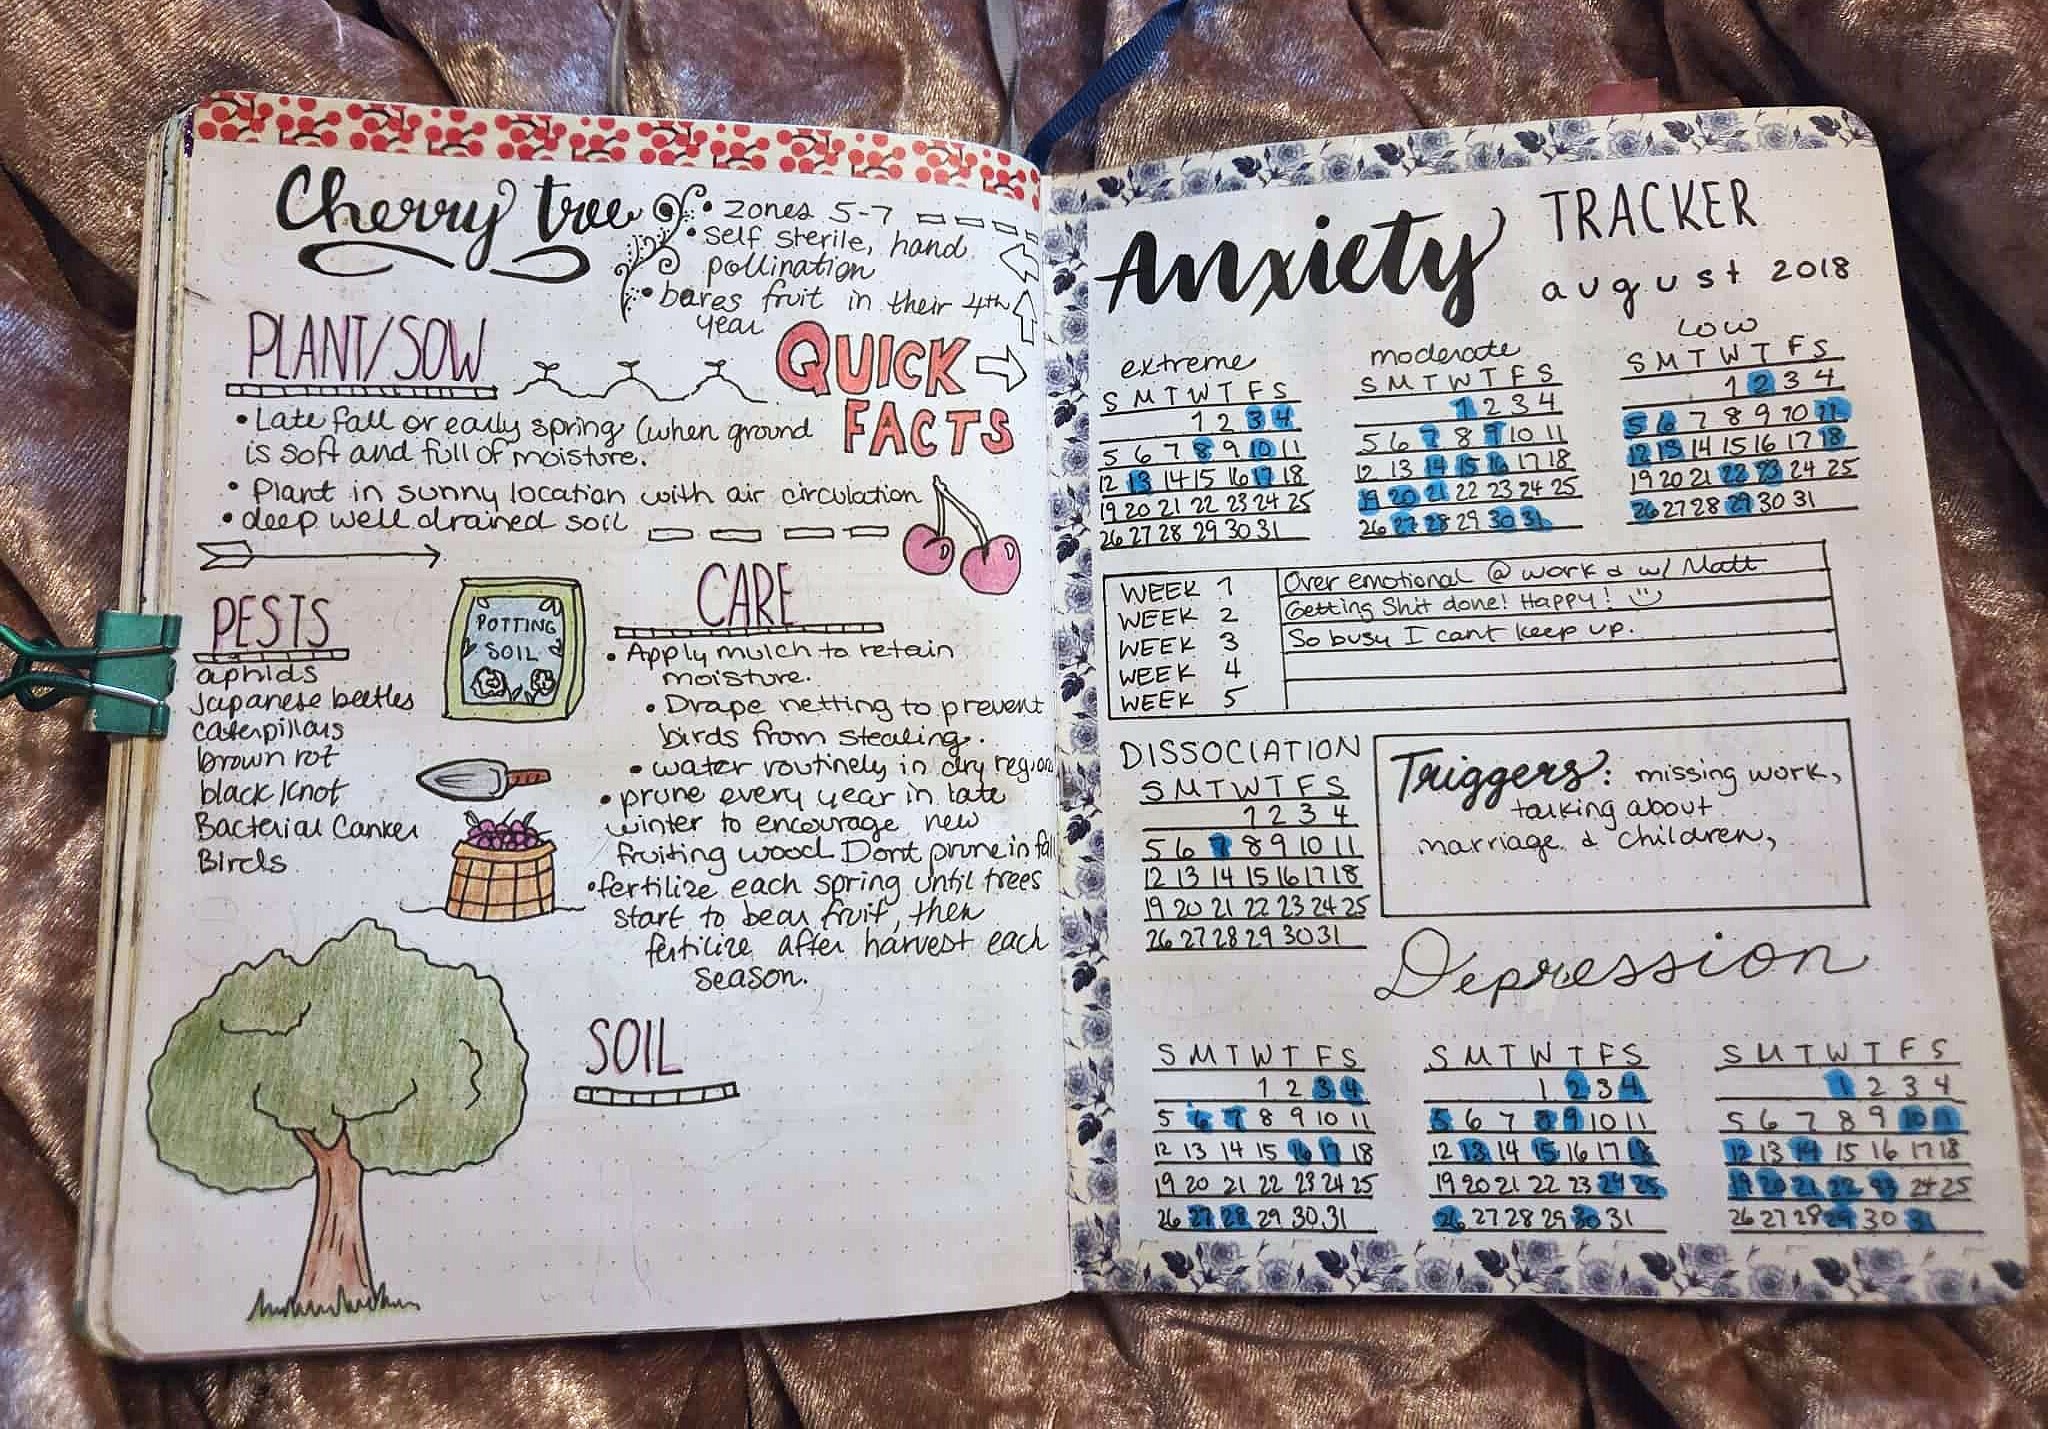 Cherry tree
• zones 5-7
• self sterile, hand
pollination
• bares fruit in their 4th
year
QUICK
FACTS
PLANT/SOW
• Late fall or early spring (when ground
is soft and full of moisture.
• Plant in sunny location with air circulation
• deep well drained soil
PESTS
aphids
Japanese beetles
caterpillars
brown rot
black knot
Bacterial Canker
Birds
POTTING
SOIL
CARE
• Apply mulch to retain
moisture.
• Drape netting to prevent
birds from stealing.
• water routinely in dry region
• prune every year in late
winter to encourage new
fruiting wood Dont prune in fall
• fertilize each spring until trees
start to bear fruit, then
fertilize after harvest each
season.
SOIL
Anxiety TRACKER
august 2018
extreme
S M T W T F S
1 2 3 4
5 6 7 8 9 10 11
12 13 14 15 16 17 18
19 20 21 22 23 24 25
26 27 28 29 30 31
moderate
S M T W T F S
1 2 3 4
5 6 7 8 9 10 11
12 13 14 15 16 17 18
19 20 21 22 23 24 25
26 27 28 29 30 31
LOW
S M T W T F S
1 2 3 4
5 6 7 8 9 10 11
12 13 14 15 16 17 18
19 20 21 22 23 24 25
26 27 28 29 30 31
WEEK 1 Over emotional @ work & w/ Matt
WEEK 2 Getting Shit done! Happy!
WEEK 3 So busy I cant keep up.
WEEK 4
WEEK 5
DISSOCIATION
S M T W T F S
1 2 3 4
5 6 7 8 9 10 11
12 13 14 15 16 17 18
19 20 21 22 23 24 25
26 27 28 29 30 31
Triggers: missing work,
talking about
marriage & children,
Depression
S M T W T F S
1 2 3 4
5 6 7 8 9 10 11
12 13 14 15 16 17 18
19 20 21 22 23 24 25
26 27 28 29 30 31
S M T W T F S
1 2 3 4
5 6 7 8 9 10 11
12 13 14 15 16 17 18
19 20 21 22 23 24 25
26 27 28 29 30 31
S M T W T F S
1 2 3 4
5 6 7 8 9 10 11
12 13 14 15 16 17 18
19 20 21 22 23 24 25
26 27 28 29 30 31